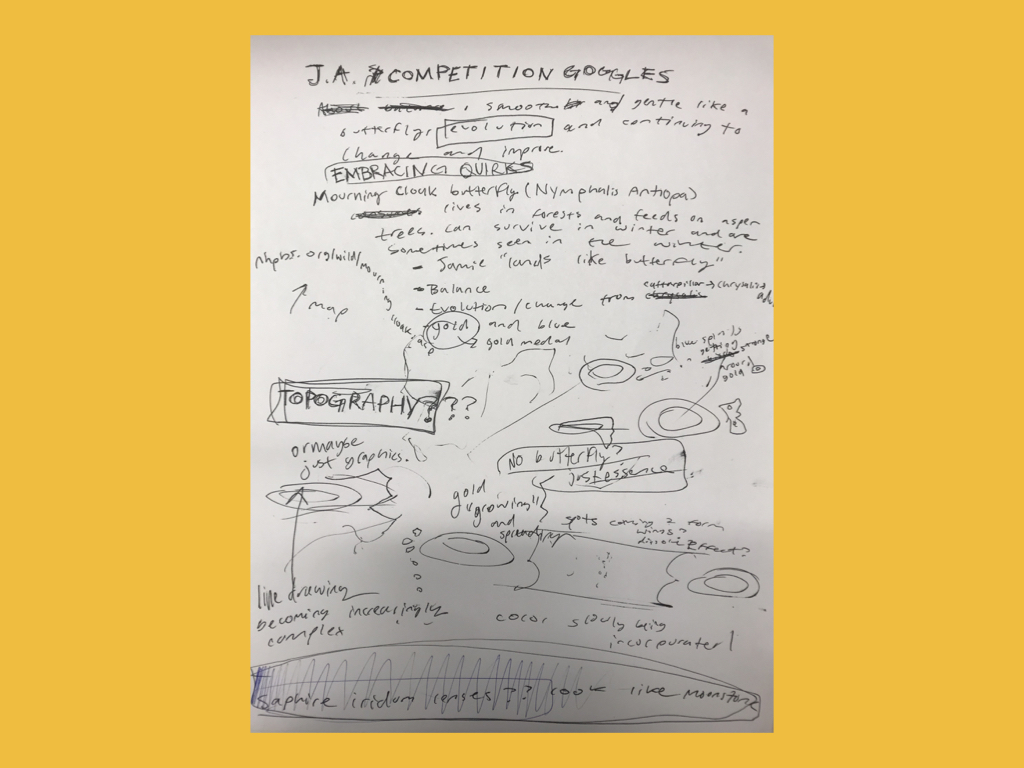 J.A. COMPETITION GOGGLES
, smooth and gentle like a
butterfly, evolution and continuing to
change and improve.
EMBRACING QUIRKS
Mourning Cloak butterfly (Nymphalis Antiopa)
lives in forests and feeds on aspen
trees. Can survive in winter and are
sometimes seen in the winter.
nhpbs.org/wild/mourningcloak.asp
- Jamie "lands like butterfly"
map
- Balance
- Evolution/change from caterpillar → chrysalis →
- gold and blue
gold medal
blue spirals
getting
stronger
around
gold
TOPOGRAPHY???
or maybe
just graphics.
NO butterfly?
just essence
gold
"growing"
and
spreading
spots coming 2 form
wings?
dissolve Effect?
line drawing
becoming increasingly
complex
color slowly being
incorporated
Saphire iridum lenses?? look like moonstone